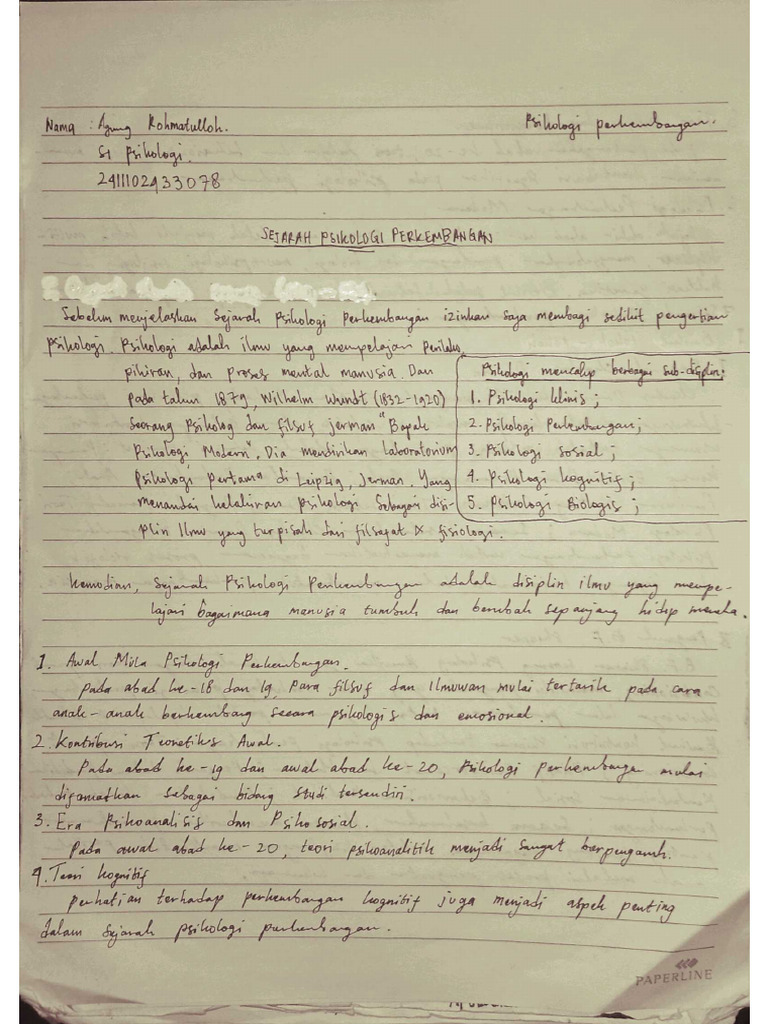 Nama : Agung Rohmatulloh.
Psikologi perkembangan.
S1 Psikologi.
2411102433078
SEJARAH PSIKOLOGI PERKEMBANGAN
Sebelum menjelaskan Sejarah Psikologi Perkembangan izinkan saya membagi sedikit pengertian
Psikologi. Psikologi adalah ilmu yang mempelajari Perilaku,
pikiran, dan proses mental manusia. Dan
pada tahun 1879, Wilhelm Wundt (1832-1920)
Seorang Psikolog dan filsuf jerman "Bapak
Psikologi Modern", Dia mendirikan laboratorium
Psikologi pertama di Leipzig, Jerman. Yang
menandai kelahiran psikologi Sebagai disi-
plin Ilmu yang terpisah dari filsafat & fisiologi.
Psikologi mencakup berbagai sub-disiplin;
1. Psikologi klinis;
2. Psikologi Perkembangan;
3. Psikologi sosial;
4. Psikologi kognitif;
5. Psikologi Biologis;
Kemudian, Sejarah Psikologi Perkembangan adalah disiplin ilmu yang mempe-
lajari bagaimana manusia tumbuh dan berubah sepanjang hidup mereka.
1. Awal Mula Psikologi Perkembangan.
Pada abad ke-18 dan 19, Para filsuf dan Ilmuwan mulai tertarik pada cara
anak-anak berkembang secara psikologis dan emosional.
2. Kontribusi Teoretikus Awal.
Pada abad ke-19 dan awal abad ke-20, Psikologi perkembangan mulai
sebagai bidang studi tersendiri.
3. Era Psikoanalisis dan Psikososial.
Pada awal abad ke-20, teori psikoanalitik menjadi sangat berpengaruh.
4. Teori kognitif
Perhatian terhadap perkembangan kognitif juga menjadi aspek penting
dalam sejarah psikologi perkembangan.
PAPERLINE